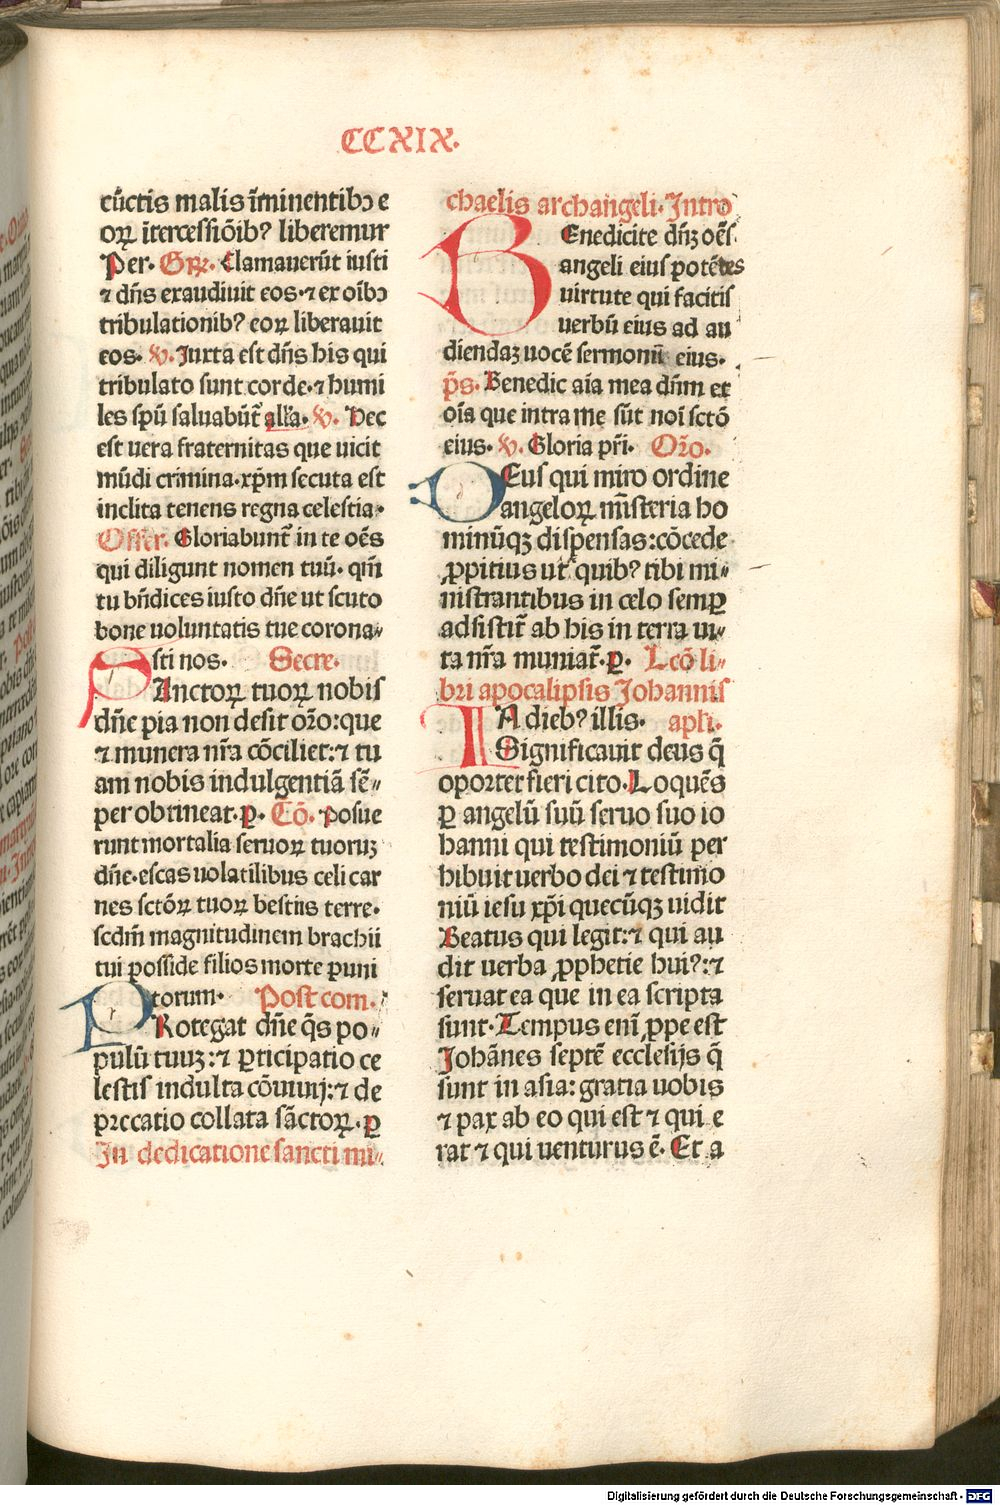 CCXIX.
cūctis malis īminentibꝫ e
oꝝ ītercessiōibꝰ liberemur
Per. Gꝛ̄. Clamauerūt iusti
⁊ dn̄s exaudiuit eos·⁊ ex oībꝫ
tribulationibꝰ eoꝝ liberauit
eos. V̄. Juxta est dn̄s his qui
tribulato sunt corde·⁊ humi
les spū saluabūt̄ all'a. V̄. Hec
est uera fraternitas que uicit
mūdi crimina·xp̄m secuta est
inclita tenens regna celestia·
Offer. Gloriabunt̄ in te oēs
qui diligunt nomen tuū· qm̄
tu bn̄dices iusto dn̄e ut scuto
bone uoluntatis tue corona⸗
sti nos. Secre.
SAnctoꝝ tuoꝝ nobis
dn̄e pia non desit oꝛ̄o: que
⁊ munera nr̄a cōciliet:⁊ tu
am nobis indulgentiā sē⸗
per obtineat·ꝑ. Cō. Posue
runt mortalia seruoꝝ tuoruꝫ
dn̄e·escas uolatilibus celi car
nes sctōꝝ tuoꝝ bestiis terre.
scdm̄ magnitudinem brachii
tui posside filios morte puni
torum. Post com.
PRotegat dn̄e q̄s po⸗
pulū tuuꝫ:⁊ ꝑticipatio ce
lestis indulta cōuiuij:⁊ de
precatio collata sāctoꝝ·ꝑ
In dedicatione sancti mi⸗
chaelis archangeli. Intro
BEnedicite dn̄ꝫ oēs
angeli eius potētes
uirtute qui facitis
uerbū eius ad au
diendaꝫ uocē sermonū eius.
p̄s. Benedic aīa mea dn̄m et
oīa que intra me sūt noī sctō
eius. V̄. Gloria pr̄i. Oꝛ̄o.
DEus qui miro ordine
angeloꝝ mīsteria ho
minūqꝫ dispensas:cōcede
ꝓpitius ut quibꝰ tibi mi⸗
nistrantibus in celo semꝑ
adsistit̄ ab his in terra ui⸗
ta nr̄a muniat̄.ꝑ. Lecō li⸗
bri apocalipsis Johannis
IN diebꝰ illis. apl'i.
Significauit deus q̄
oportet fieri cito. Loquēs
ꝑ angelū suū seruo suo io
hanni qui testimoniū per
hibuit uerbo dei ⁊ testimo
niū iesu xp̄i quecūqꝫ uidit
Beatus qui legit:⁊ qui au
dit uerba ꝓphetie huiꝰ:⁊
seruat ea que in ea scripta
sunt. Tempus enī ꝓpe est
Johānes septē ecclesijs q̄
sunt in asia: gratia uobis
⁊ pax ab eo qui est ⁊ qui e
rat ⁊ qui uenturus ē. Et a
Digitalisierung gefördert durch die Deutsche Forschungsgemeinschaft - DFG